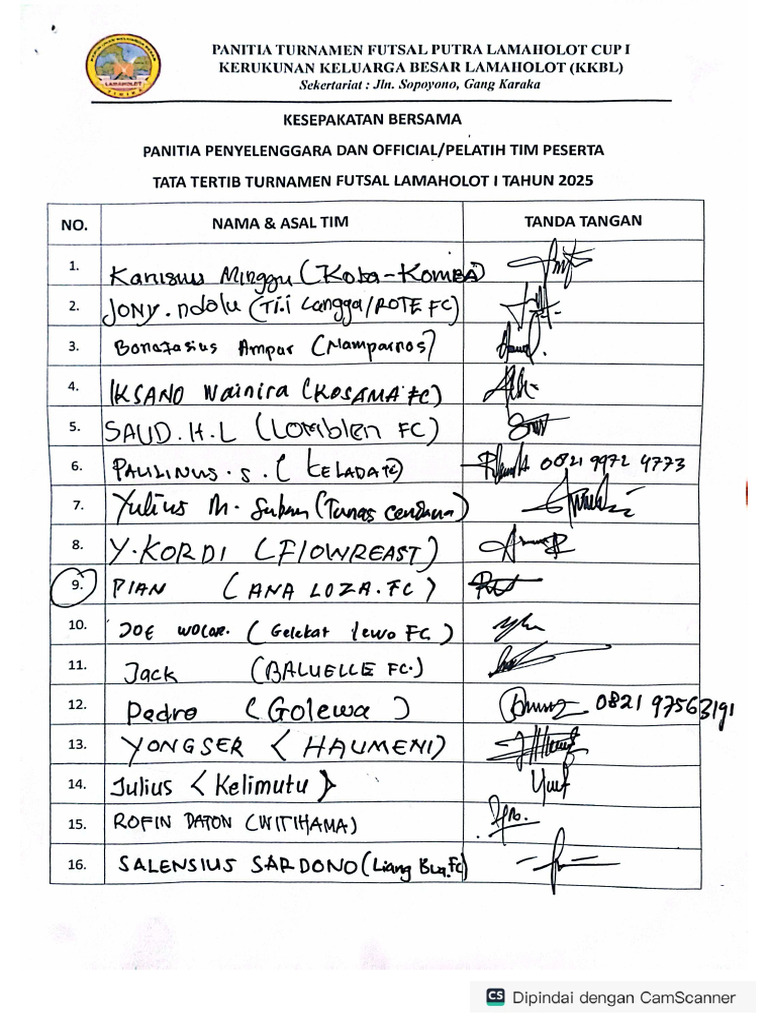 PANITIA TURNAMEN FUTSAL PUTRA LAMAHOLOT CUP I
KERUKUNAN KELUARGA BESAR LAMAHOLOT (KKBL)
Sekertariat : Jln. Sopoyono, Gang Karaka
LAMAHOLOT
KESEPAKATAN BERSAMA
PANITIA PENYELENGGARA DAN OFFICIAL/PELATIH TIM PESERTA
TATA TERTIB TURNAMEN FUTSAL LAMAHOLOT I TAHUN 2025
NO. NAMA & ASAL TIM TANDA TANGAN
1. Kanisius Minggu (Kota-Komba)
2. JONY. ndolu (Ti.i Langga/ROTE FC)
3. Bonafasius Ampur (Mamparnos)
4. IKSANO Wainira (KOSAMA FC)
5. SAUD.H.L (Lomblen FC)
6. PAULINUS.S. (KELADA FC) 0821 9972 4773
7. Yulius M. (Tunas Cendana)
8. Y.KORDI (FLOWREAST)
9. PIAN (ANA LOZA.FC)
10. JOE WOLOR. (Gelekat lewo FC)
11. Jack (BALUELLE FC.)
12. Pedro (Golewa) 0821 97563191
13. YONGSER (HAUMENI)
14. Julius (Kelimutu)
15. ROFIN DATON (WITIHAMA)
16. SALENSIUS SARDONO (Liang Bua.FC)
CS Dipindai dengan CamScanner